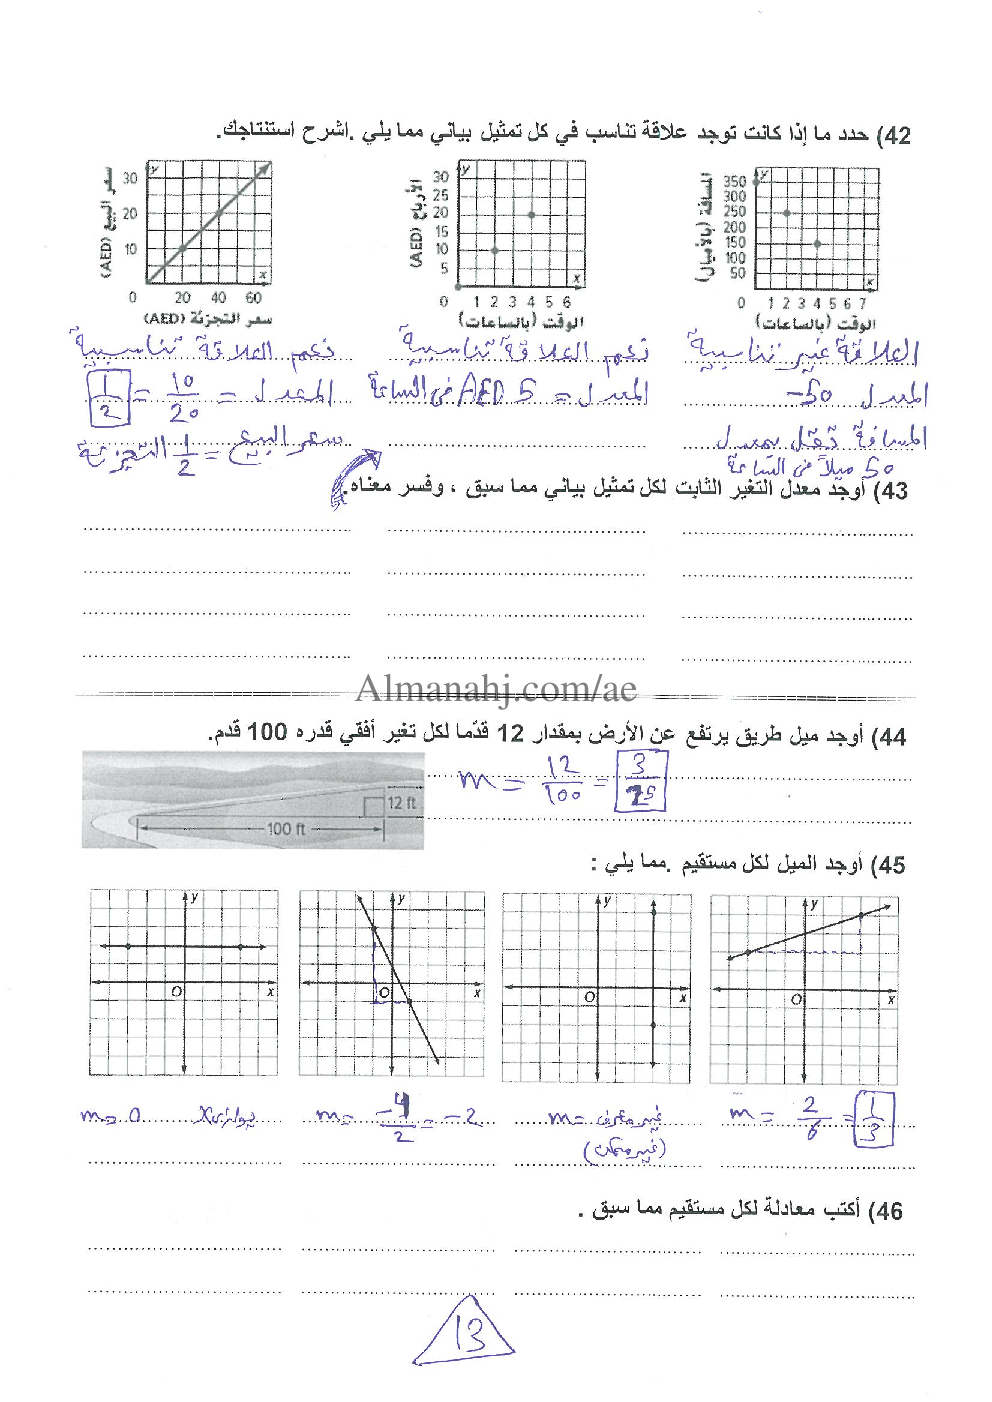 42) حدد ما إذا كانت توجد علاقة تناسب في كل تمثيل بياني مما يلي .اشرح استنتاجك.
المسافة (بالأميال)
350
300
250
200
150
100
50
0
1 2 3 4 5 6 7
y
x
الوقت (بالساعات)
الأرباح (AED)
30
25
20
15
10
5
0
1 2 3 4 5 6
y
x
الوقت (بالساعات)
سعر البيع (AED)
30
20
10
0
20 40 60
y
x
سعر التجزئة (AED)
العلاقة غير تناسبية
المعدل 50-
المسافة تقل بمعدل
50 ميلاً في الساعة
نعم العلاقة تناسبية
المعدل = 5 AED في الساعة
نعم العلاقة تناسبية
المعدل = 10/20 = 1/2
سعر البيع = 1/2 التجزئة
43) أوجد معدل التغير الثابت لكل تمثيل بياني مما سبق ، وفسر معناه.
Almanahj.com/ae
44) أوجد ميل طريق يرتفع عن الأرض بمقدار 12 قدمًا لكل تغير أفقي قدره 100 قدم.
12 ft
100 ft
m = 12/100 = 3/25
45) أوجد الميل لكل مستقيم .مما يلي :
y
O
x
y
O
x
y
O
x
y
O
x
m = 2/6 = 1/3
m = غير معرف
(غير ممكن)
m = -4/2 = -2
m = 0 يوازي x
46) أكتب معادلة لكل مستقيم مما سبق .
13